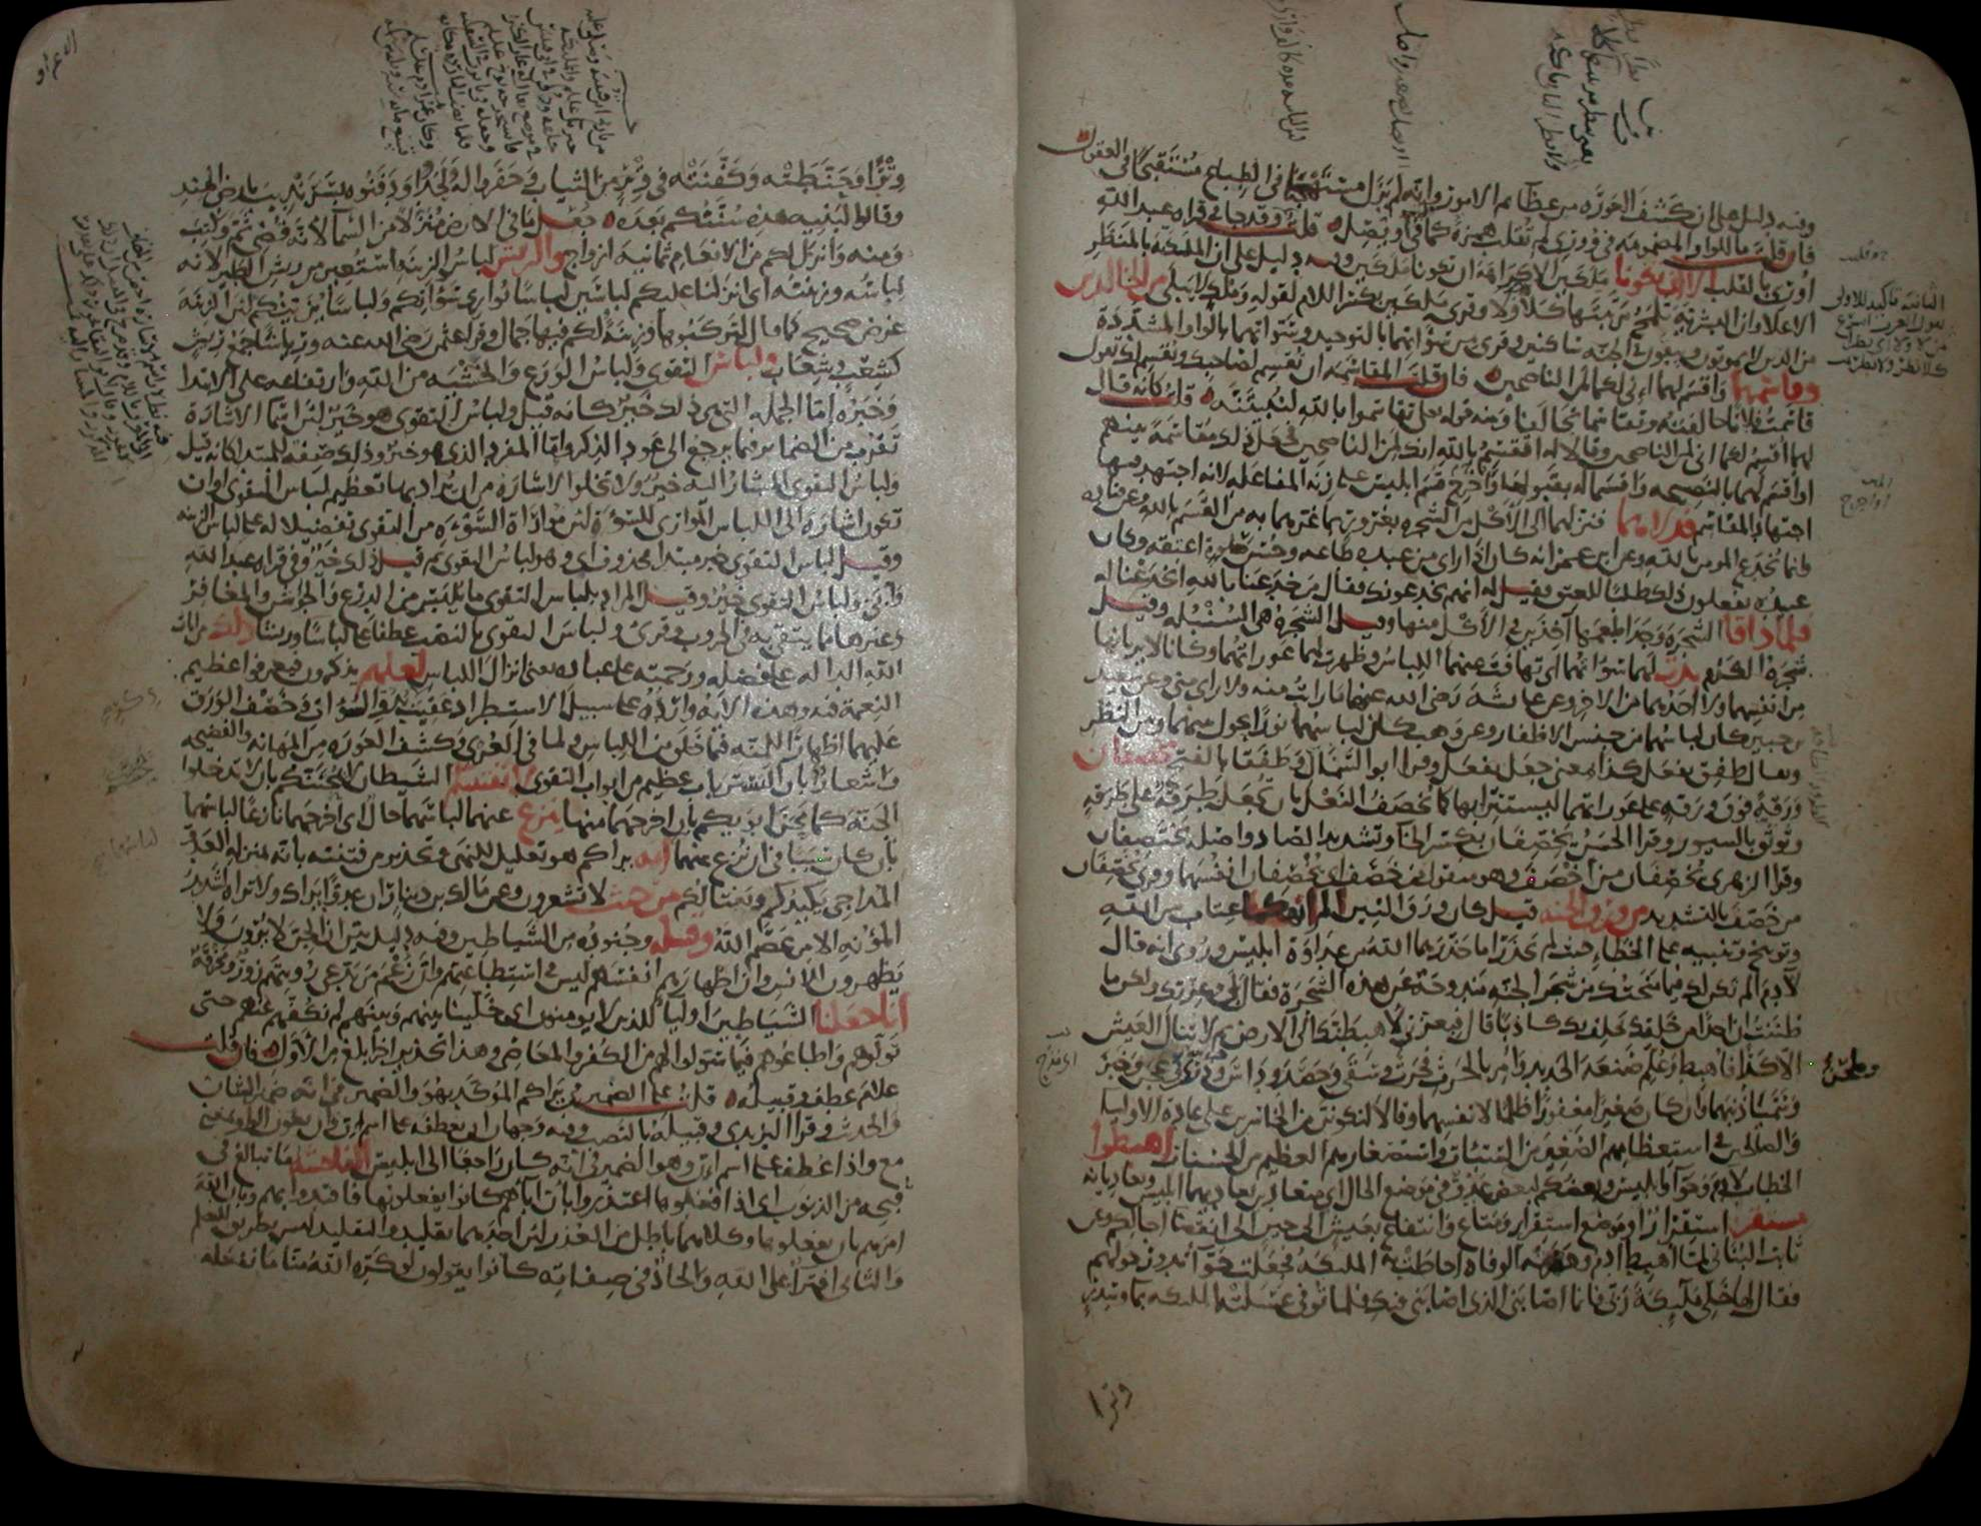 وفيه دليل على ان كشف العورة من عظائم الامور وانه لم يزل مستهجنا في الطباع مستقبحا في العقول
فان قلت ما للواو المضمومة في ووري لم تقلب همزة كما في اويصل قلت وقد جا في قراة عبد الله
اوري بالقلب الا ان تكونا ملكين الا كراهة ان تكونا ملكين وفيه دليل على ان الملكية بالمنظر
الاعلى وان البشرية تلمح مرتبتها كلا ولا وقرى ملكين بكسر اللام لقوله وملك لا يبلى من الخالدين
من الذين لا يموتون ويبقون في الجنة ساكنين وقرى من سوأتهما بالتوحيد وسواتهما بالواو المشددة
وقاسمهما واقسم لهما اني لكما لمن الناصحين فان قلت المقاسمة ان تقسم لصاحبك ويقسم لك تقول
قاسمت فلانا حالفته وتقاسما تحالفا ومنه قوله تعلى تقاسموا بالله لنبيتنه قلت كانه قال
لهما اقسم لكما اني لمن الناصحين وقالا له اتقسم بالله انك لمن الناصحين فجعل ذلك مقاسمة بينهم
او اقسم لهما بالنصيحة واقسما له بقبولها واخرج قسم ابليس على زنة المفاعلة لانه اجتهد فيها
اجتهاد المقاسم فدلاهما فنزلهما الى الاكل من الشجرة بغرور بما غرهما به من القسم بالله وعن قتادة
وانما يخدع المومن بالله وعن ابن عمر انه كان اذا راى من عبده طاعة وحسن صلوة اعتقه وكان
عبيده يفعلون ذلك طلبا للعتق فقيل له انهم يخدعونك فقال من خدعنا بالله انخدعنا له
فلما ذاقا الشجرة وجدا طعمها آخذين في الاكل منها وقيل الشجرة هي السنبلة وقيل
شجرة الكرم بدت لهما سواتهما اي تهافت عنهما اللباس وظهرت لهما عوراتهما وكانا لا يريانها
من انفسهما ولا احدهما من الاخر وعن عائشة رضي الله عنها ما رايت منه ولا راى مني وعن سعيد
بن جبير كان لباسهما من جنس الاظفار وعن وهب كان لباسهما نورا يحول بينهما وبين النظر
ويقال طفق يفعل كذا بمعنى جعل يفعل وقرا ابو السمال وطفقا بالفتح يخصفان
ورقة فوق ورقة على عوراتهما ليستترا بها كما تخصف النعل بان تجعل طرقة على طرقة
وتوثق بالسيور وقرا الحسن يخصفان بكسر الخا وتشديد الصاد واصله يختصفان
وقرا الزهري يخصفان من اخصف وهو منقول من خصف اي يخصفان انفسهما وقرى يخصفان
من خصف بالتشديد من ورق الجنة قيل كان ورق التين الم انهكما عتاب من الله
وتوبيخ وتنبيه على الخطاء حيث لم يحذرا ما حذرهما الله من عداوة ابليس وروي انه قال
لآدم الم يكن لك فيما منحتك من شجر الجنة مندوحة عن هذه الشجرة فقال بلى وعزتك ولكن ما
ظننت ان احدا من خلقك يحلف بك كاذبا قال فبعزتي لاهبطنك الى الارض ثم لا تنال العيش
الا كدا فاهبط وعلم صنعة الحديد وامر بالحرث فحرث وسقى وحصد وداس وذرى وعجن وخبز
وسميا ذنبهما وان كان صغيرا مغفورا ظلما لانفسهما وقالا لنكونن من الخاسرين على عادة الاوليا
والصالحين في استعظامهم الصغير من السيئات واستصغارهم العظيم من الحسنات اهبطوا
الخطاب لآدم وحوا وابليس وبعضكم لبعض عدو في موضع الحال اي متعادين يعاديهما ابليس ويعاديانه
مستقر استقرار او موضع استقرار ومتاع وانتفاع بعيش الى حين الى انقضا اجالكم وعن
ثابت البناني لما اهبط ادم وحضرته الوفاة احاطت به الملئكة فجعلت حوا تدور حولهم
فقال لها خلي ملئكة ربي فانما اصابني الذي اصابني فيك فلما توفي غسلته الملئكة بما وسدر
وترا
وترا وحنطته وكفنته في وتر من الثياب وحفروا له ولحدوا ودفنوه بسرنديب بارض الهند
وقالوا لبنيه هذه سنتكم بعده جعل ما في الارض منزلا من السما لانه قضي ثم وكتب
ومنه وانزل لكم من الانعام ثمانية ازواج والريش لباس الزينة استعير من ريش الطير لانه
لباسه وزينته اي انزلنا عليكم لباسين لباسا يواري سوآتكم ولباسا يزينكم لان الزينة
غرض صحيح كما قال لتركبوها وزينة ولكم فيها جمال وقرا عثمن رضي الله عنه ورياشا جمع ريش
كشعب وشعاب ولباس التقوى ولباس الورع والخشية من الله وارتفاعه على الابتدا
وخبره اما الجملة التي هي ذلك خير كانه قيل ولباس التقوى هو خير لان اسما الاشارة
تقرب من الضماير فيما يرجع الى عود الذكر واما المفرد الذي هو خير وذلك صفة للمبتدا كانه قيل
ولباس التقوى المشار اليه خير ولا تخلوا الاشارة من ان يراد بها تعظيم لباس التقوى او ان
تكون اشارة الى اللباس المواري للسوءة لان مواراة السوءة من التقوى تفضيلا له على لباس الزينة
وقيل لباس التقوى خبر مبتدا محذوف اي وهو لباس التقوى ثم قيل ذلك خير وفي قراة عبد الله
وابي ولباس التقوى خير وقيل المراد بلباس التقوى ما يلبس من الدروع والجواشن والمغافر
وغيرها مما يتقى به في الحروب وقرى ولباس التقوى بالنصب عطفا على لباسا وريشا ذلك من ايات
الله الدالة على فضله ورحمته على عباده يعني انزال اللباس لعلهم يذكرون فيعرفوا عظيم
النعمة فيه وهذه الآية واردة على سبيل الاستطراد عقيب ذكر بدو السوات وخصف الورق
عليهما اظهارا للمنة فيما خلق من اللباس ولما في العري وكشف العورة من المهانة والفضيحة
واشعارا بان التستر باب عظيم من ابواب التقوى لا يفتننكم الشيطان لا يمتحننكم بان لا تدخلوا
الجنة كما محن ابويكم بان اخرجهما منها ينزع عنهما لباسهما حال اي اخرجهما نازعا لباسهما
بان كان سببا في ان نزع عنهما انه يراكم هو تعليل للنهي وتحذير من فتنته بانه بمنزلة العدو
المداجي يكيدكم ويغتالكم من حيث لا تشعرون وعن مالك بن دينار ان عدوا يراك ولا تراه لشديد
المؤنة الا من عصم الله وقبيله وجنوده من الشياطين وفيه دليل بين ان الجن لا يرون ولا
يظهرون للانس وان اظهارهم انفسهم ليس في استطاعتهم وان زعم من يدعي رويتهم زور ومخرقة
انا جعلنا الشياطين اوليا للذين لا يومنون اي خلينا بينهم وبينهم لم نكفهم عنهم حتى
تولوهم واطاعوهم فيما سولوا لهم من الكفر والمعاصي وهذا تحذير اخر ابلغ من الاول فان قلت
علام عطف وقبيله قلت على الضمير في يراكم الموكد بهو والضمير في انه ضمير الشان
والحديث وقرا اليزيدي وقبيله بالنصب وفيه وجهان ان يعطفه على اسم ان وان تكون الواو بمعنى
مع واذا عطفه على اسم ان وهو الضمير في انه كان راجعا الى ابليس الفاحشة ما تبالغ في
قبحه من الذنوب اي اذا فعلوها اعتذروا بان آباهم كانوا يفعلونها فاقتدوا بهم وبان الله
امرهم بان يفعلوها وكلاهما باطل من العذر لان احدهما تقليد والتقليد ليس بطريق للعلم
والثاني افترا على الله والحاد في صفاته كانوا يقولون لو كره الله منا ما نفعله